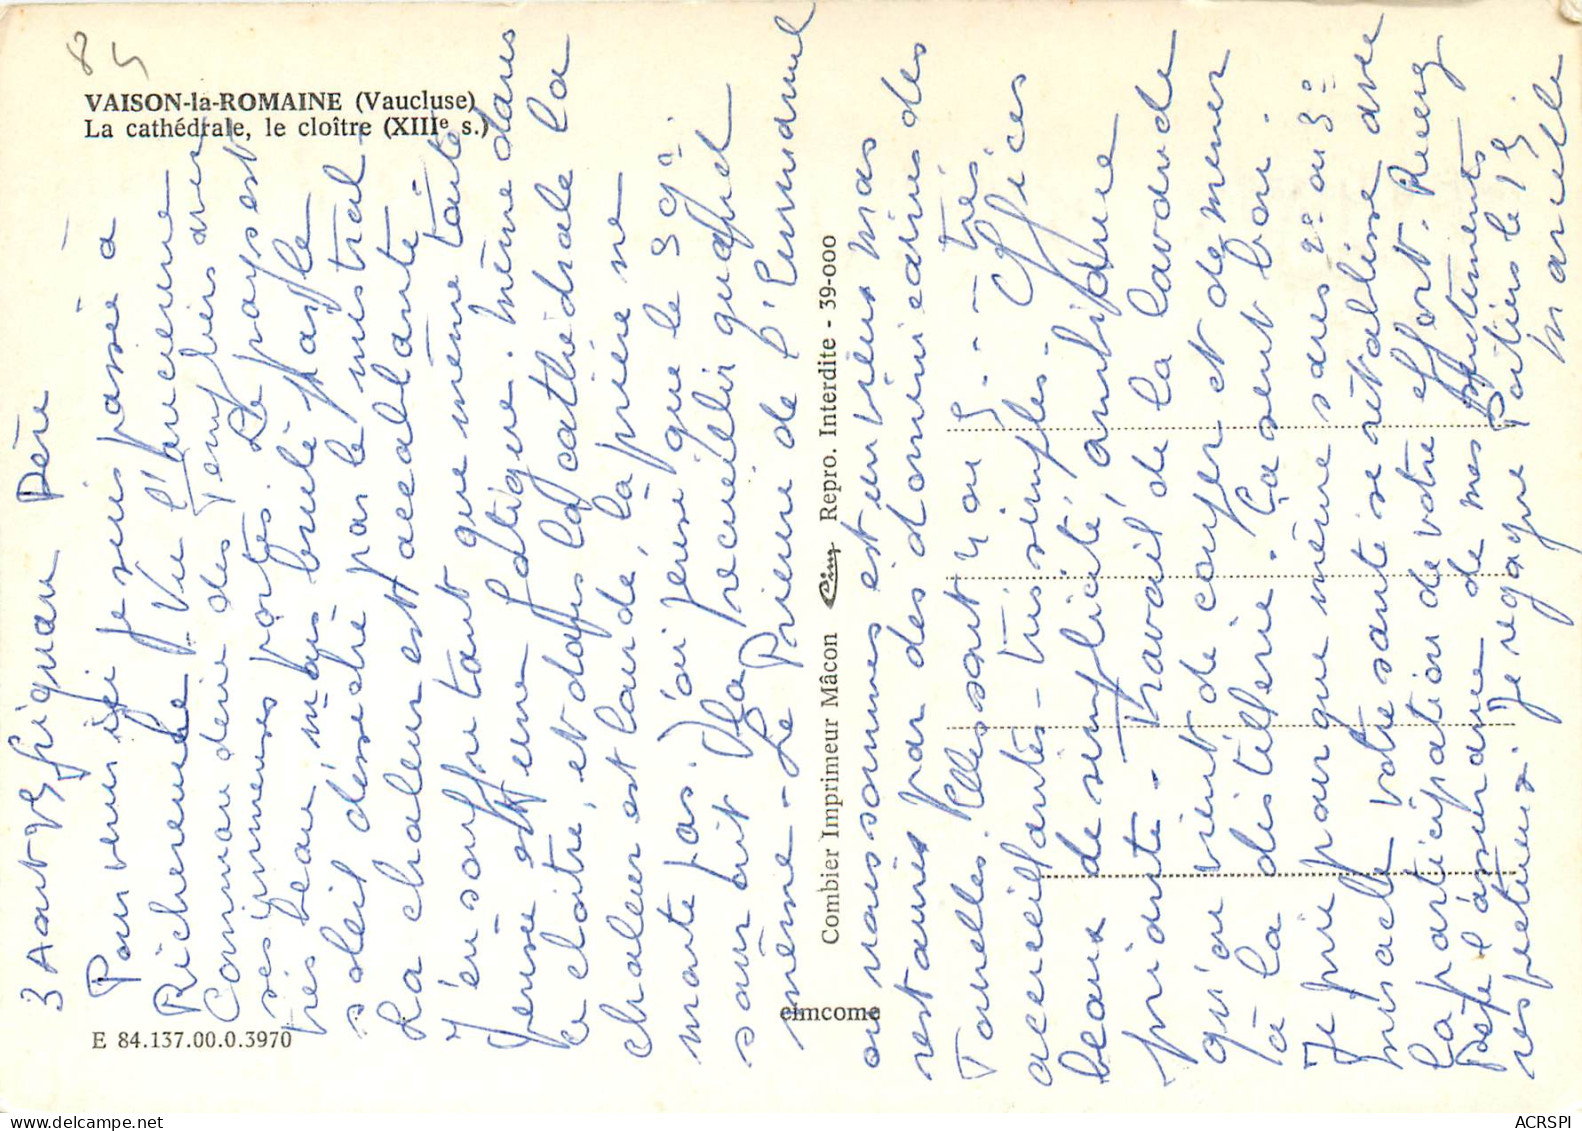 84
VAISON-la-ROMAINE (Vaucluse)
La cathédrale, le cloître (XIIIe s.)
3 Aout 75 Grignan Père
Pour venir ici je suis passé à
Richerenche Vu l'ancienne
Commanderie des Templiers avec
ses immenses portes. Le pays est
très beau, mais brulé par le
soleil désséché par le mistral.
La chaleur est accablante.
J'en souffre tant que même toute
pensée est une fatigue. Même dans
ce cloitre, et dans la cathédrale la
chaleur est lourde, la prière ne
monte pas. J'ai pensé que le 3 9e
saurait la recueillir quand
même - Le Prieuré de l'Emmanuel
où nous sommes est un vieux mas
restauré par des dominicaines des
Tourelles. Elles sont 4 ou 5 - très
acceuillantes - très simples. Offices
beaux de simplicité, ambiance
priante - travail de la lavande
qu'on vient de couper et de mener
à la distillerie. Ça sent bon.
Je prie pour que même sans 2e ou 3e
miracle votre santé se rétablisse avec
la participation de votre effort. Recevez
Père l'assurance de mes sentiments
respectueux. Je regagne Poitiers le 15
Marcelle
E 84.137.00.0.3970
Combier Imprimeur Mâcon Cim Repro. Interdite - 39-000
cimcome
ACRSPI